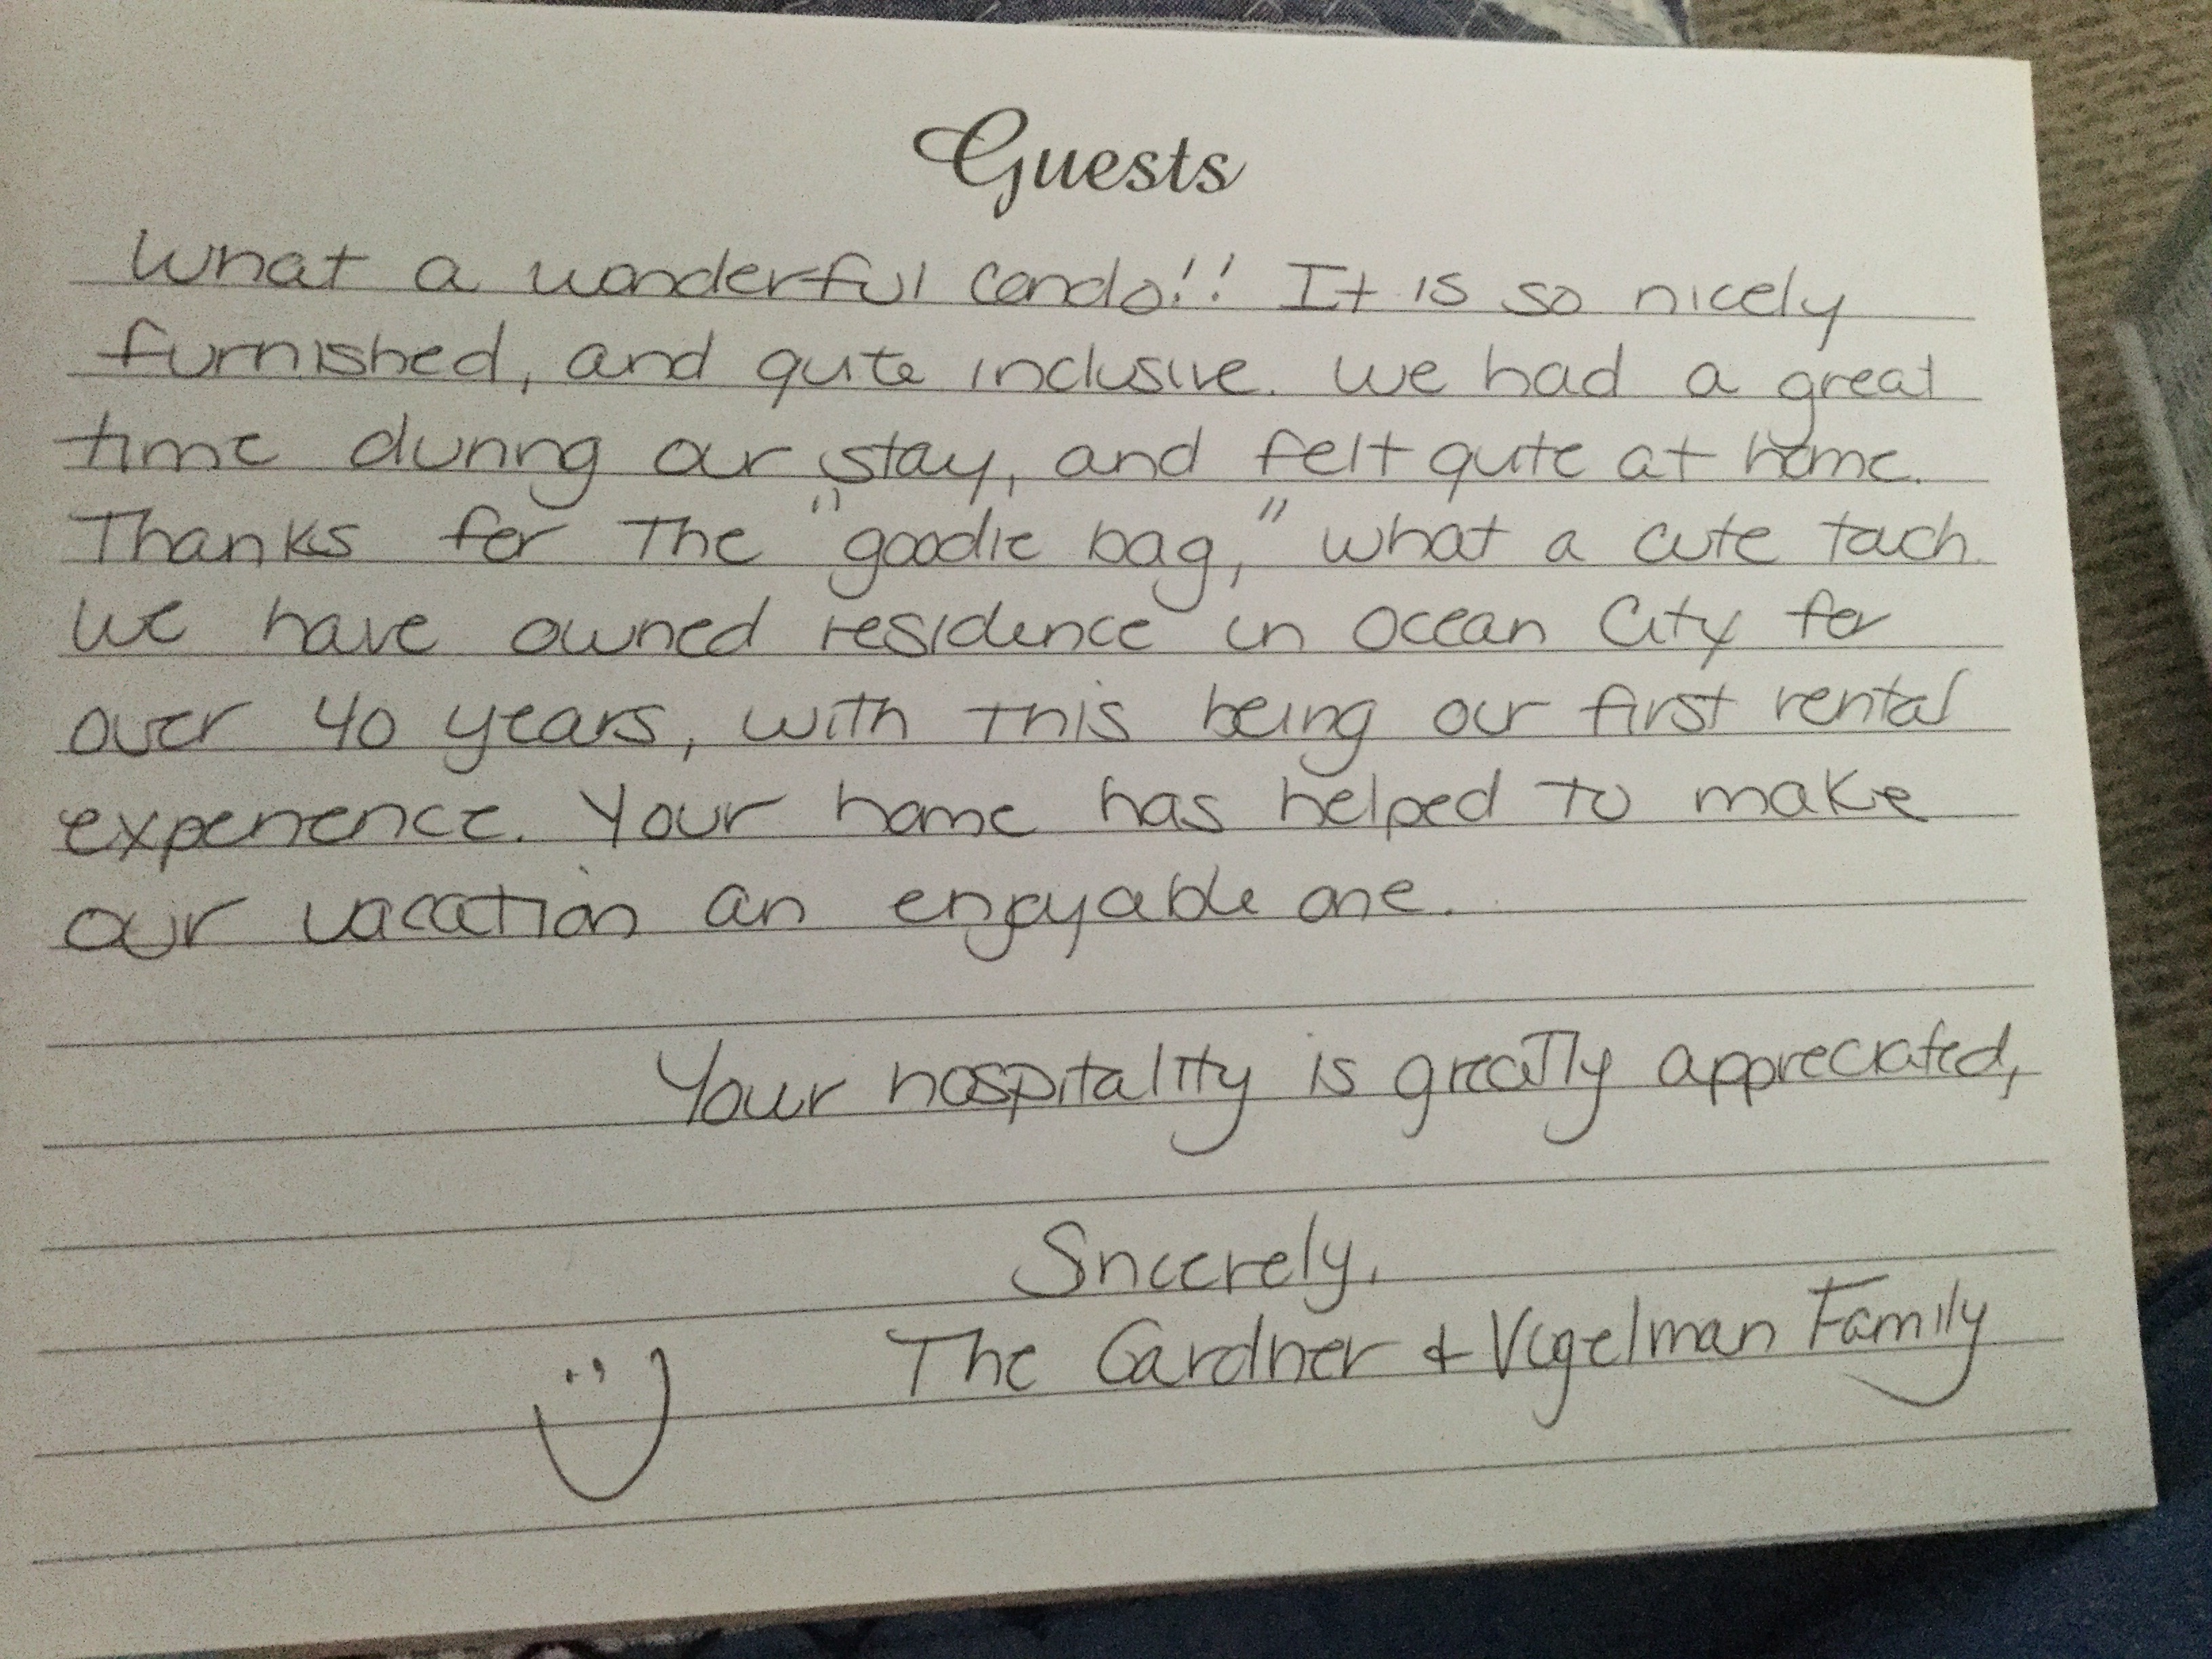 Guests
What a wonderful condo!! It is so nicely
furnished, and quite inclusive. We had a great
time during our stay, and felt quite at home.
Thanks for the "goodie bag," what a cute touch.
We have owned residence in Ocean City for
over 40 years, with this being our first rental
experience. Your home has helped to make
our vacation an enjoyable one.
Your hospitality is greatly appreciated,
Sincerely,
The Gardner & Vogelman Family
:)